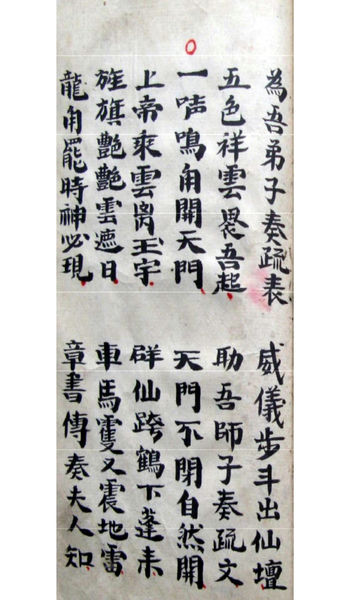 為吾弟子奏疏表 威儀步斗出仙壇
五色祥雲畏吾起 助吾師子奏疏文
一鳴角開天門 天門不閉自然開
上帝乘雲离玉宇 群仙跨鶴下蓬来
旌旗艷艷雲遮日 車馬䨥又震地雷
龍角罷時神必現 章書傳奏夫人知